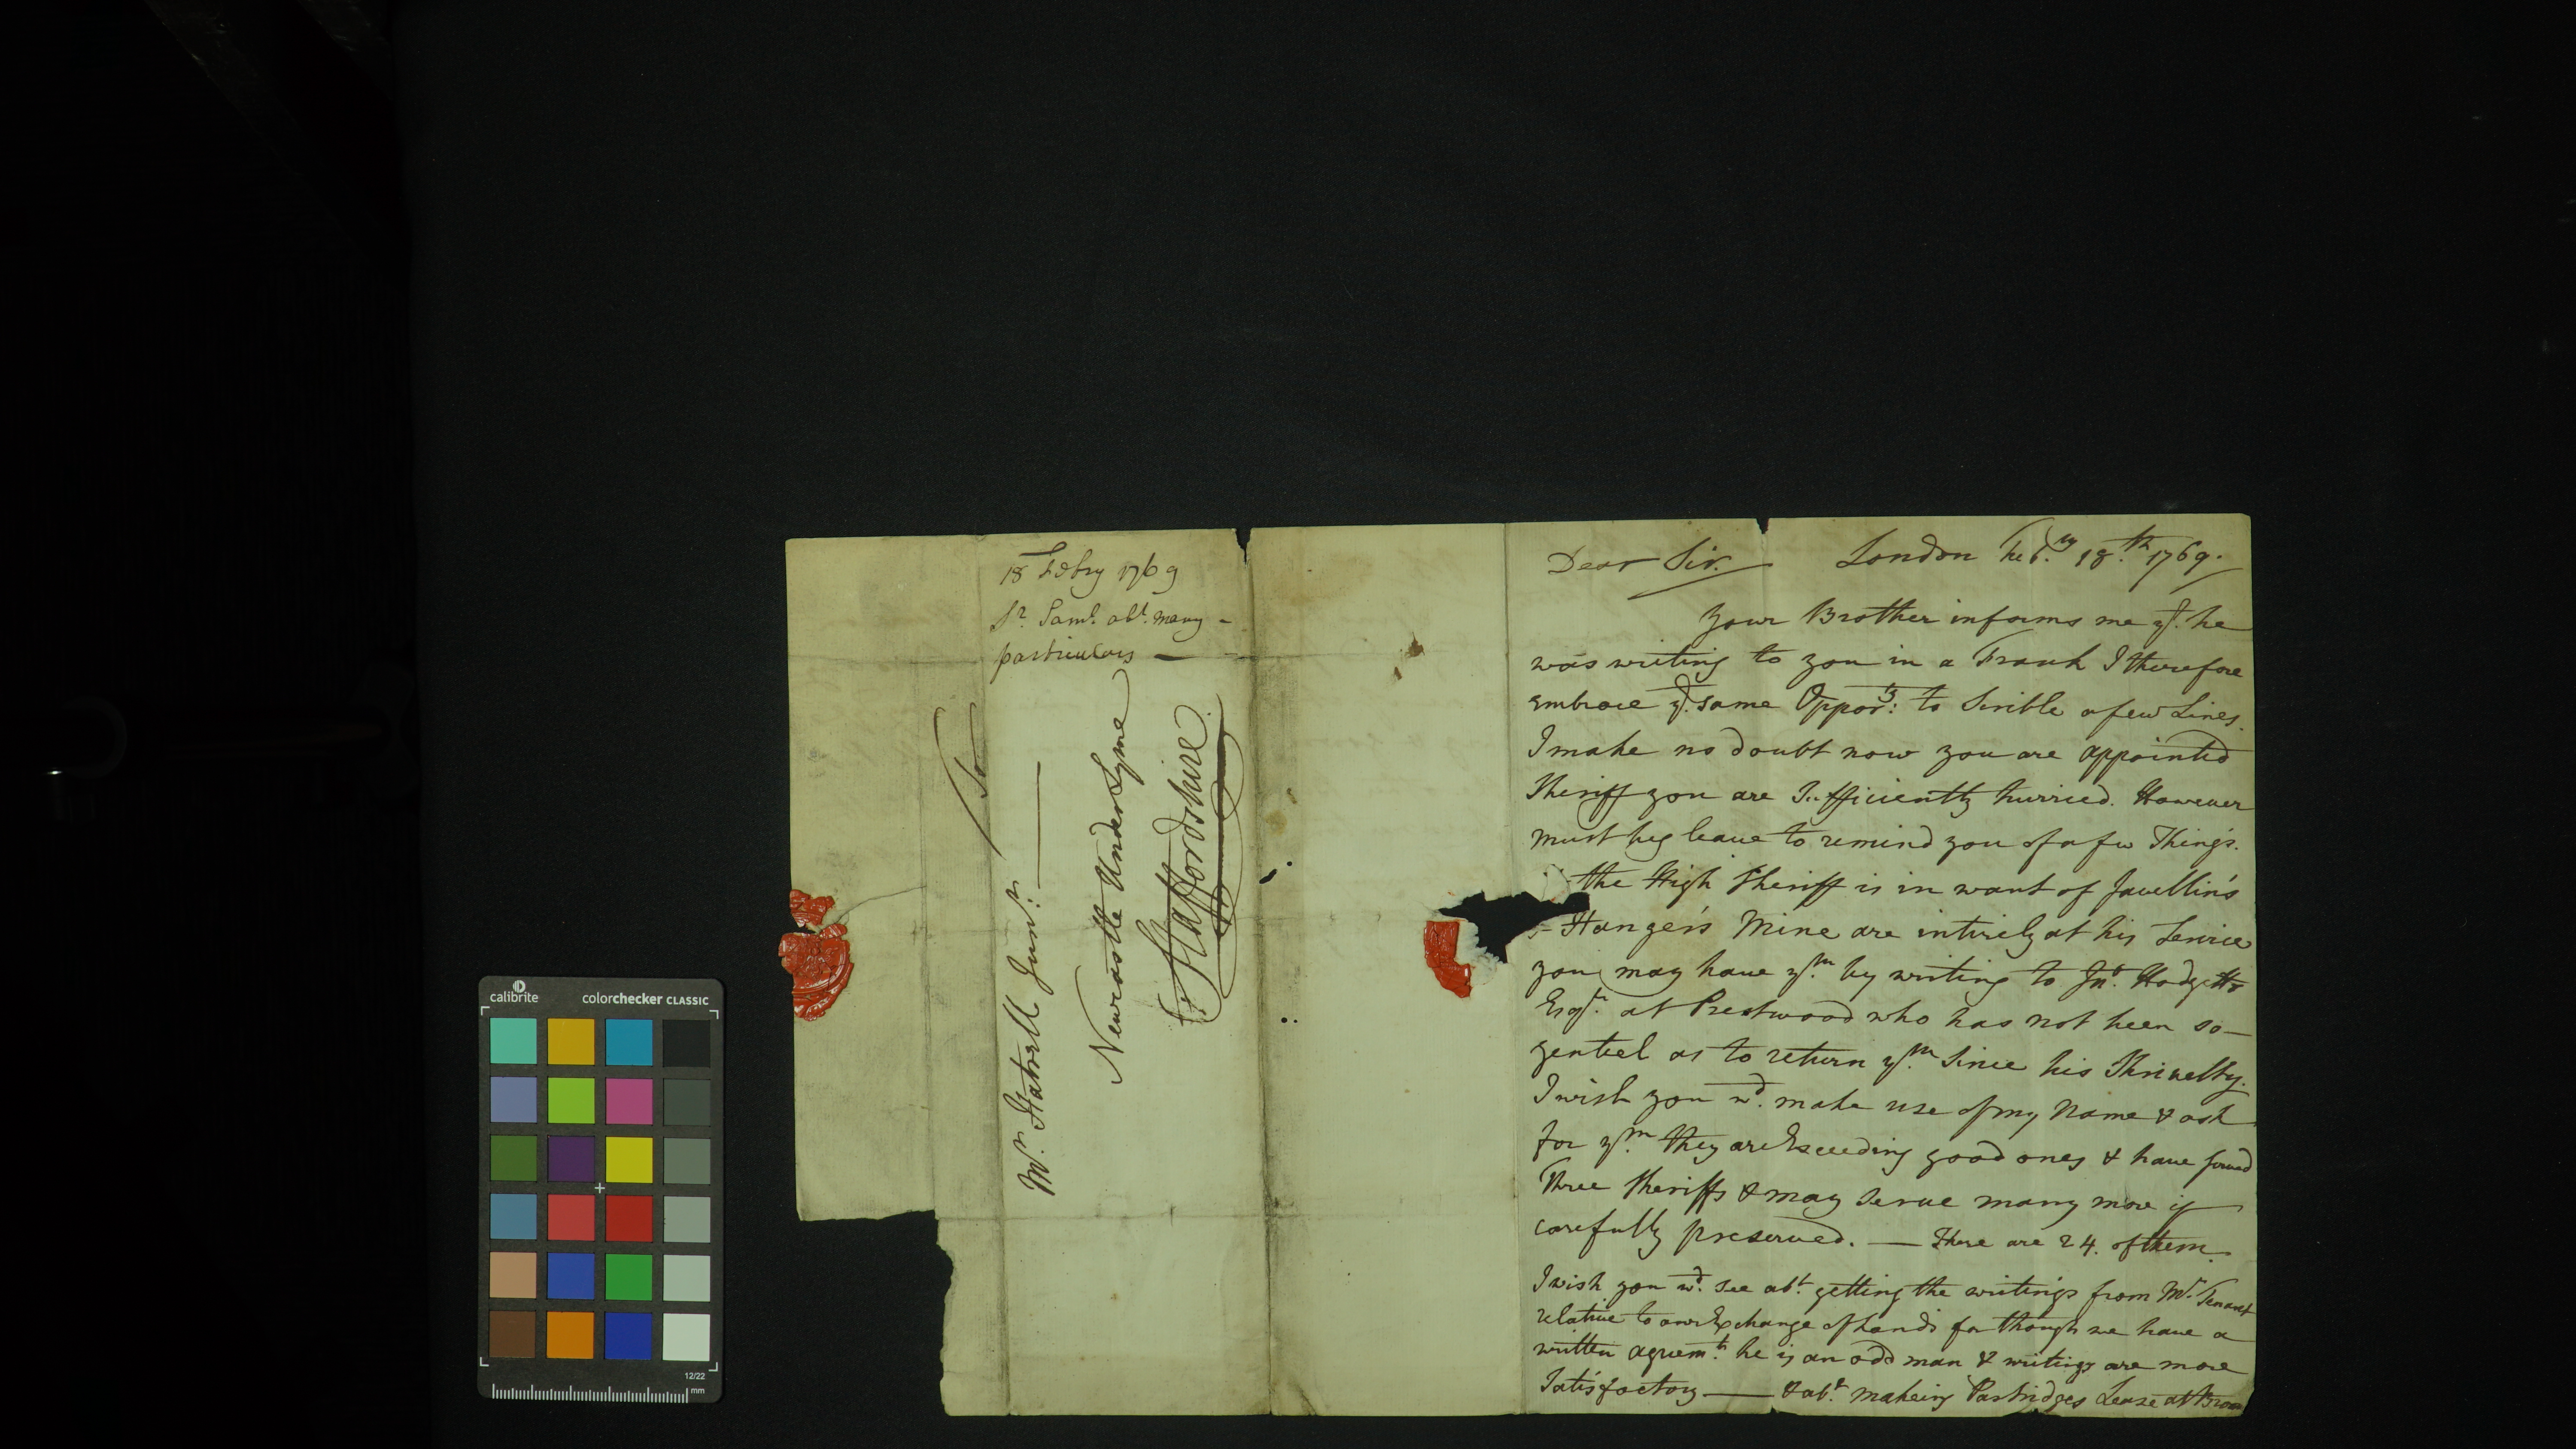 18 Febry 1769
Sr. Saml. abt. many -
particulars —
To
Mr. Hatrell Junr.
Newcastle Under Lyme
Staffordshire
Dear Sir. London Feb.ry 18.th 1769.
Your Brother informs me yt. he
was writing to you in a Frank I therefore
embrace ye. same Oppor:ty to Scrible a few Lines.
I make no doubt now you are appointed
Sheriff you are Sufficiently hurried. However
must beg leave to remind you of a few Things.
the High Sheriff is in want of Javellin's
Hanger's Mine are intirely at his Service
you may have ym. by writing to Jno. Hodgetts
Esqr. at Prestwood who has not been so
genteel as to return ym. Since his Shrivelty.
I wish you wd. make use of my Name & ask
for ym. they are Exceeding good ones & have served
Three Sheriffs & may Serve many more if
carefully preserved. — There are 24. of them.
I wish you wd. see abt. getting the writings from Mr. Tenant
relative to our Exchange of Lands for though we have a
written agreemt. he is an odd man & writings are more
Satisfactory — & abt. makeing Partridges Lease at Brom
calibrite colorchecker CLASSIC
12/22
mm